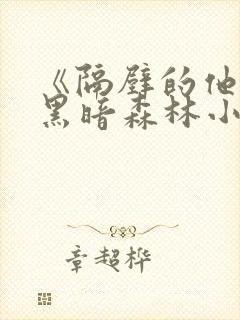 《隔壁的他
黑暗森林小
章超桦